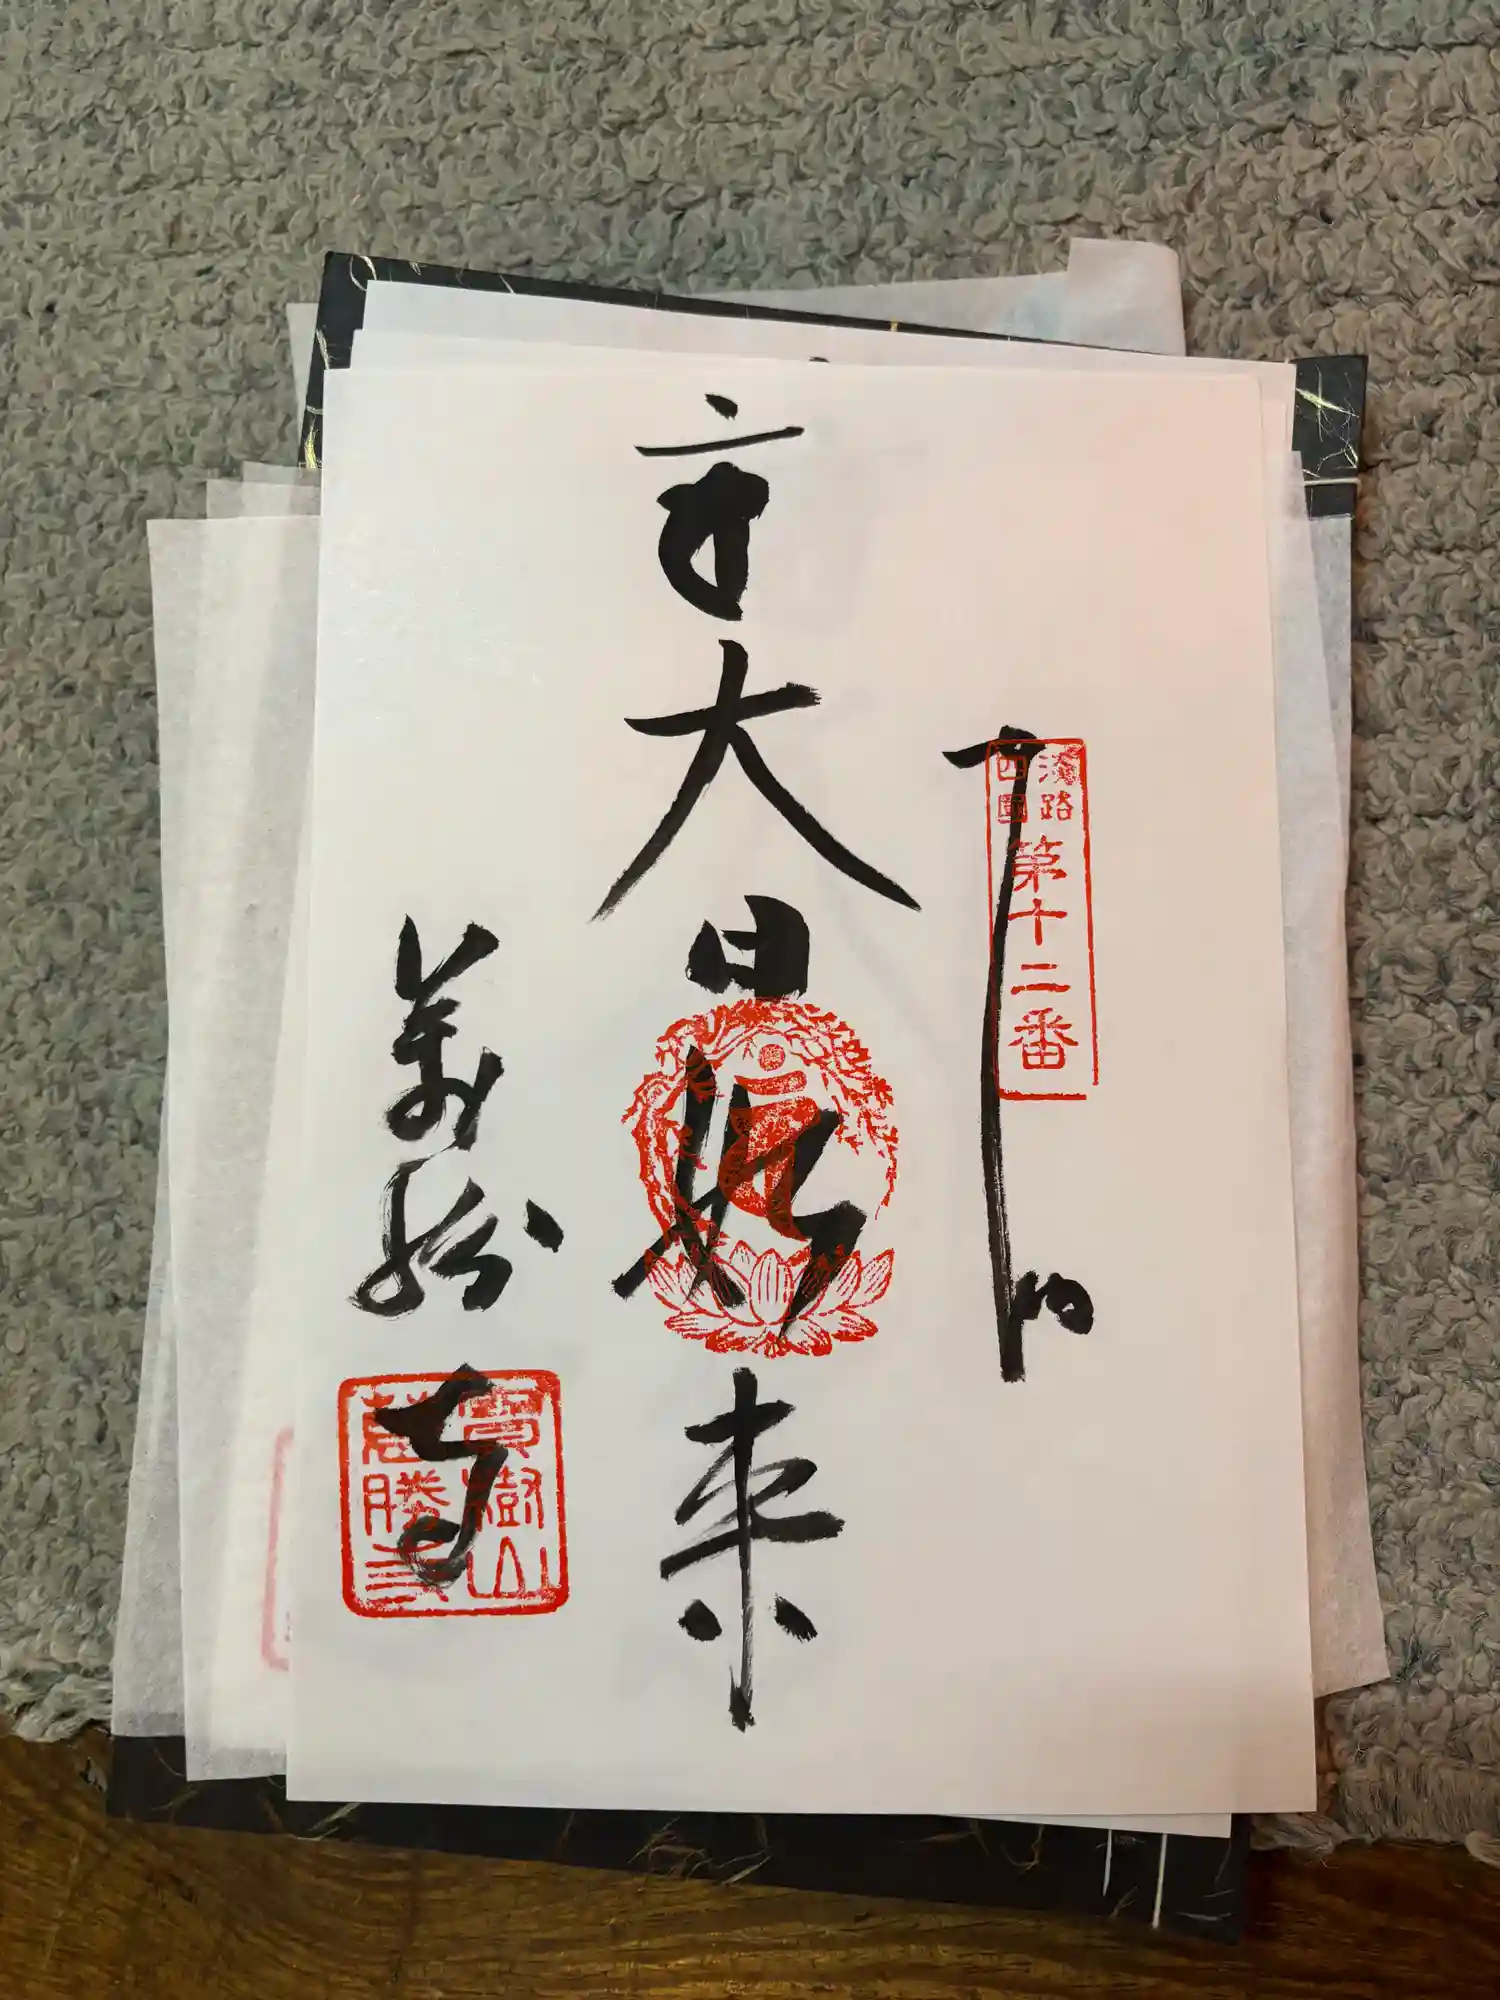 淡路
四國
第十二番
大日如来
萬勝寺
寶樹山
萬勝寺